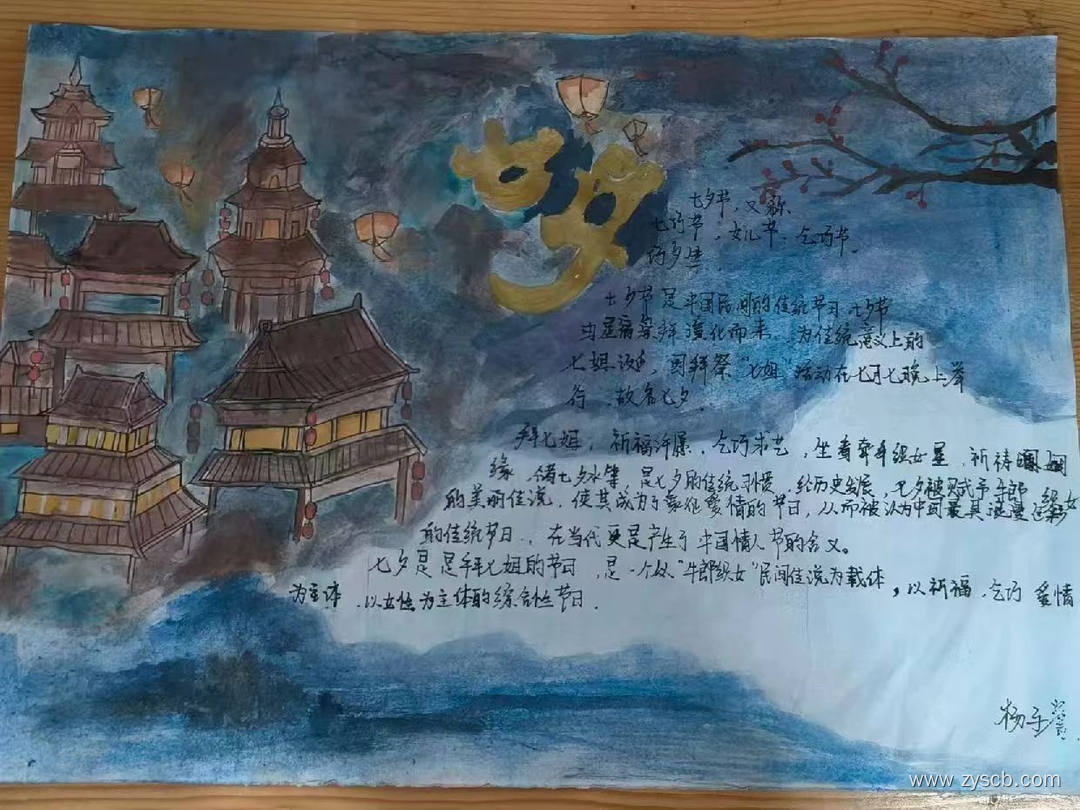 七夕
七夕节，又称
七巧节，女儿节，乞巧节。
巧夕
七夕节是中国民间的传统节日 七夕节
由星宿崇拜演化而来，为传统意义上的
七姐诞，因拜祭“七姐”活动在七月七晚上举
行 故名七夕．
拜七姐，祈福许愿，乞巧求艺，坐看牵牛织女星，祈祷姻
缘，储七夕水等，是七夕的传统习惯，经历史发展，七夕被赋予牛郎 织女
的美丽传说，使其成为了象征爱情的节日，从而被认为中国最具浪漫
的传统节日，在当代更是产生了中国情人节的含义。
七夕是是拜七姐的节日，是一个以“牛郎织女”民间传说为载体，以祈福．乞巧 爱情
为主体．以女性为主体的综合性节日．
杨
www.zyscb.com